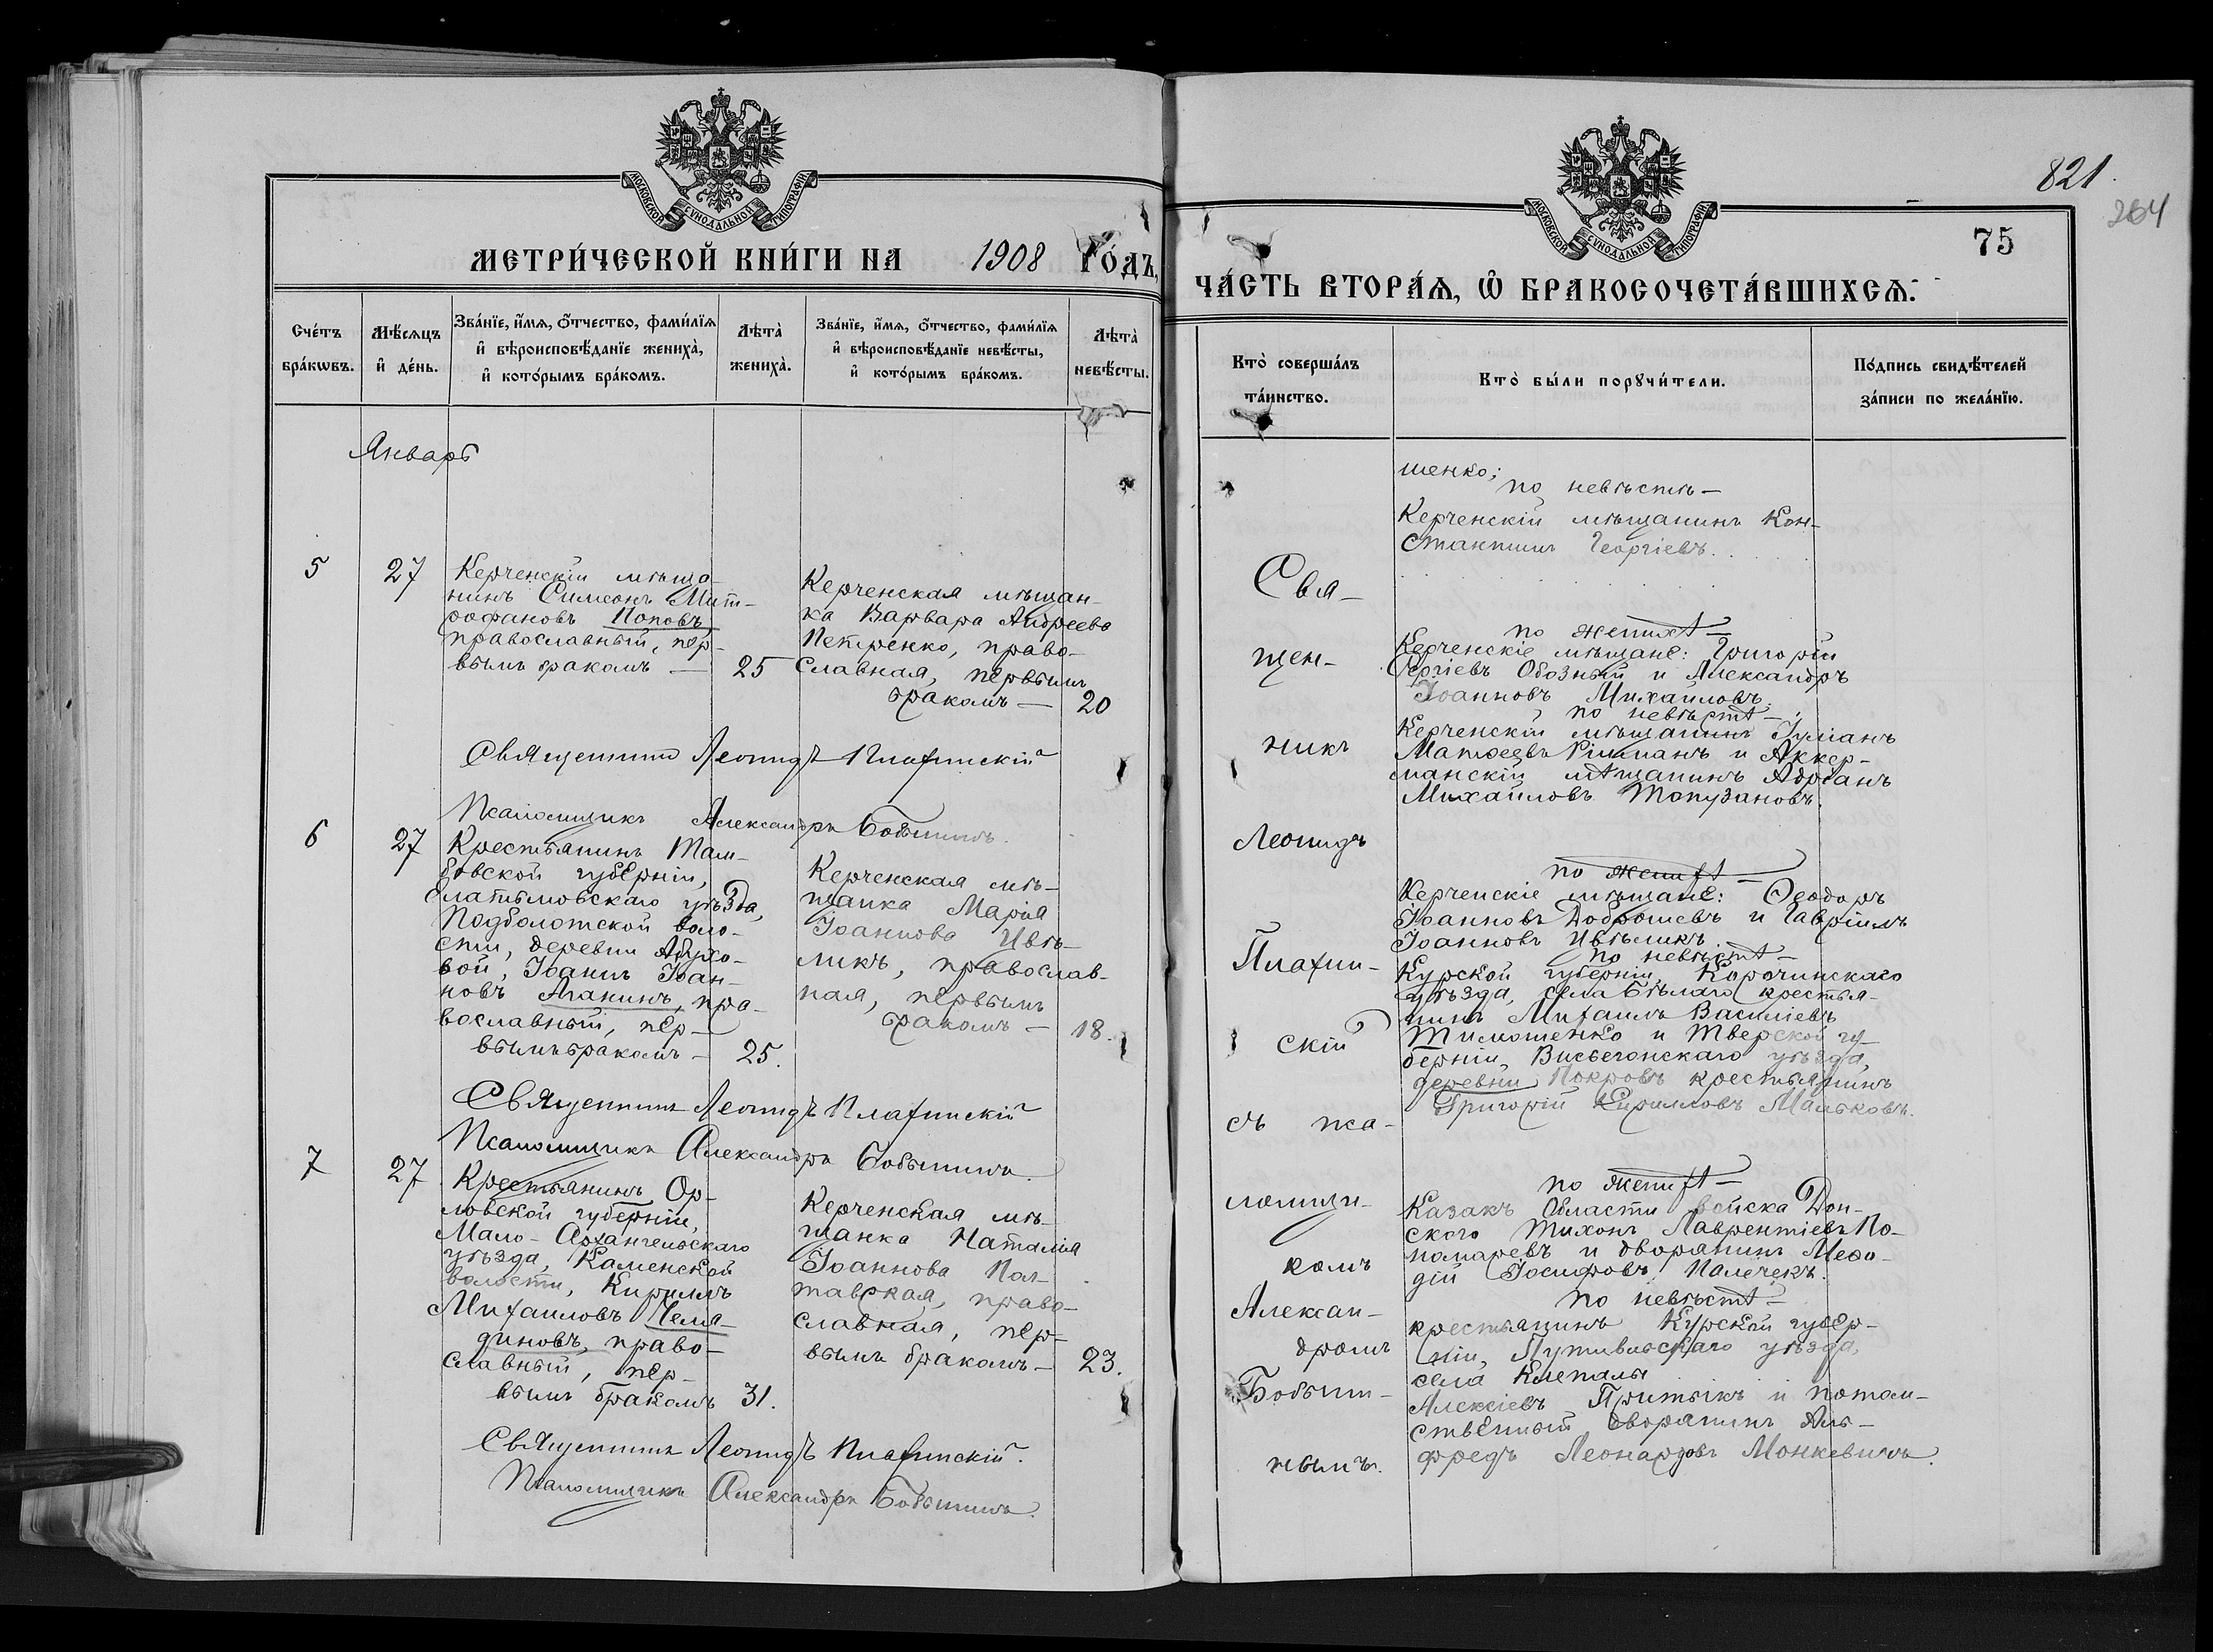 МОСКОВСКОЙ СУНОДАЛЬНОЙ ТИПОГРАФІИ
МЕТРИ́ЧЕСКОЙ КНИ́ГИ НА 1908 ГО́ДЪ,
Сче́тъ бра́кѡвъ.
Мѣ́сяцъ и҆ де́нь.
Зва́нїе, и҆́мѧ, ѻ҆́тчество, фами́лїѧ и҆ вѣроисповѣ́данїе жениха̀, и҆ кото́рымъ бра́комъ.
Лѣта̀ жениха̀.
Зва́нїе, и҆́мѧ, ѻ҆́тчество, фами́лїѧ и҆ вѣроисповѣ́данїе невѣ́сты, и҆ кото́рымъ бра́комъ.
Лѣта̀ невѣ́сты.
Январь
5
27
Керченскій мѣща-
нинъ Симеонъ Мит-
рофановъ Поповъ
православный, пер-
вымъ бракомъ —
25
Керченская мѣщан-
ка Варвара Андреева
Петренко, право-
славная, первымъ
бракомъ —
20
Священникъ Леонидъ Плафинскій
Псаломщикъ Александръ Бобынинъ.
6
27
Крестьянинъ Там-
бовской губерніи,
Елатьмовскаго уѣзда,
Подболотской воло-
сти, деревни
вой, Іоаннъ Іоан-
новъ Аганинъ, пра-
вославный, пер-
вымъ бракомъ —
25.
Керченская мѣ-
щанка Марія
Іоаннова Цвѣ-
ликъ, православ-
ная, первымъ
бракомъ —
18.
Священникъ Леонидъ Плафинскій
Псаломщикъ Александръ Бобынинъ.
7
27
Крестьянинъ Ор-
ловской губерніи,
Мало-Архангельскаго
уѣзда, Каменской
волости, Кириллъ
Михаиловъ Чема-
диновъ, право-
славный, пер-
вымъ бракомъ
31.
Керченская мѣ-
щанка Наталія
Іоаннова Пол-
тавская, право-
славная, пер-
вымъ бракомъ —
23.
Священникъ Леонидъ Плафинскій.
Псаломщикъ Александръ Бобынинъ.
821.
264
75
МОСКОВСКОЙ СУНОДАЛЬНОЙ ТИПОГРАФІИ
ЧА́СТЬ ВТОРА́Ѧ, Ѡ҆ БРАКОСОЧЕТА́ВШИХСѦ.
Кто̀ соверша́лъ та́инство.
Кто̀ бы́ли порꙋчи́тели.
По́дпись свидѣ́телей за́писи по жела́нїю.
Свя-
щен-
никъ
Леонидъ
Плафин-
скій
съ пса-
ломщи-
комъ
Алексан-
дромъ
Бобыни-
нымъ.
шенко;
по невѣстѣ —
Керченскій мѣщанинъ Кон-
стантинъ Георгіевъ.
по женихѣ —
Керченскіе мѣщане: Григорій
Сергіевъ Обозный и Александръ
Іоанновъ Михаиловъ.
по невѣстѣ —
Керченскій мѣщанинъ Іуліанъ
Матѳеевъ и Аккер-
манскій мѣщанинъ Адріанъ
Михайловъ Топузановъ.
по женихѣ —
Керченскіе мѣщане: Ѳеодоръ
Іоанновъ Доброшевъ и Гавріилъ
Іоанновъ Цвѣликъ.
по невѣстѣ —
Курской губерніи, Корочинскаго
уѣзда, села Бѣлаго крестья-
нинъ Михаилъ Василіевъ
Тимошенко и Тверской гу-
берніи, Висьегонскаго уѣзда,
деревни Покровъ крестьянинъ
Григорій Кирилловъ Мальковъ.
по женихѣ —
Казакъ Области войска Дон-
ского Тихонъ Лаврентіевъ По-
номаревъ и дворянинъ Меѳо-
дій Іосифовъ Палечекъ.
по невѣстѣ —
крестьянинъ Курской губер-
ніи, Путивльскаго уѣзда,
села Клепалы
Алексіевъ Притыкъ и потом-
ственный дворянинъ Аль-
фредъ Леонардовъ Монкевичъ.